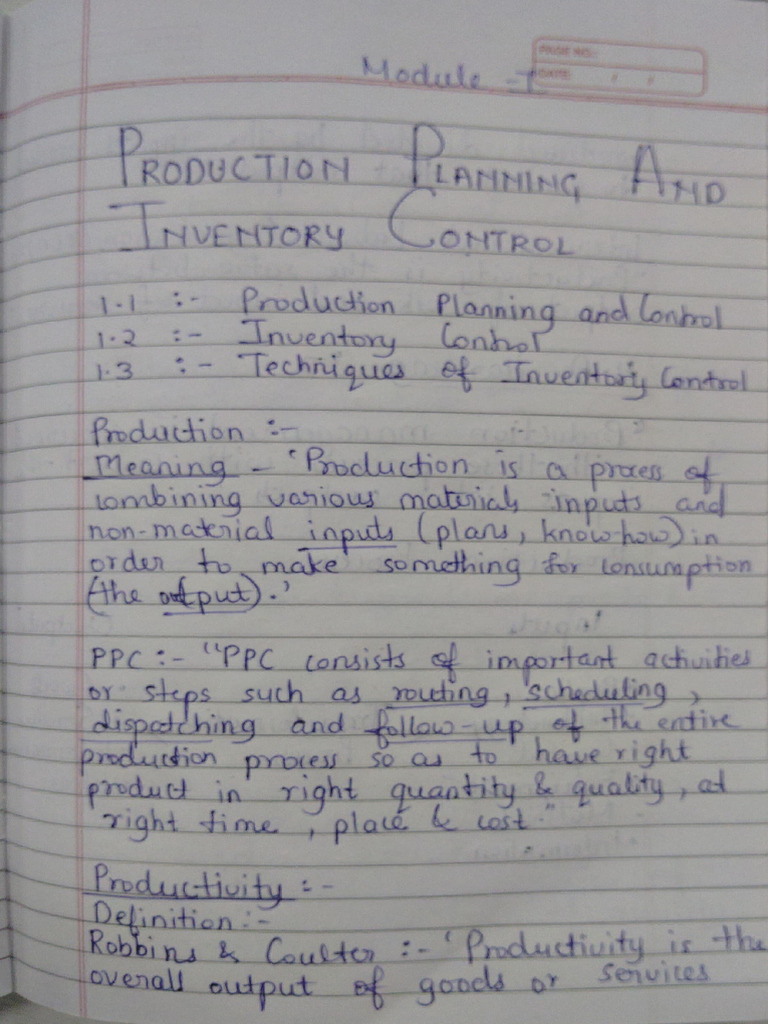 Module - I
PAGE NO.:
DATE: / /
PRODUCTION PLANNING AND
INVENTORY CONTROL
1.1 :- Production Planning and Control
1.2 :- Inventory Control
1.3 :- Techniques of Inventory Control
Production :-
Meaning - 'Production is a process of
combining various materials inputs and
non-material inputs (plans, know-how) in
order to make something for consumption
(the output).'
PPC :- "PPC consists of important activities
or steps such as routing, scheduling,
dispatching and follow-up of the entire
production process so as to have right
product in right quantity & quality, at
right time, place & cost."
Productivity :-
Definition :-
Robbins & Coulter :- 'Productivity is the
overall output of goods or services